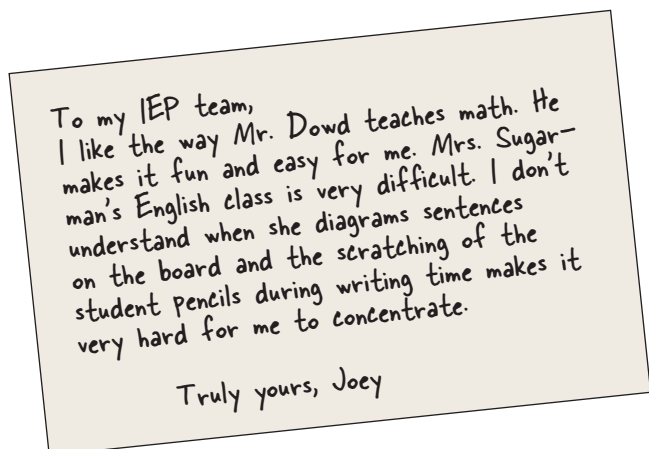 To my IEP team,
I like the way Mr. Dowd teaches math. He
makes it fun and easy for me. Mrs. Sugar-
man's English class is very difficult. I don't
understand when she diagrams sentences
on the board and the scratching of the
student pencils during writing time makes it
very hard for me to concentrate.
Truly yours, Joey